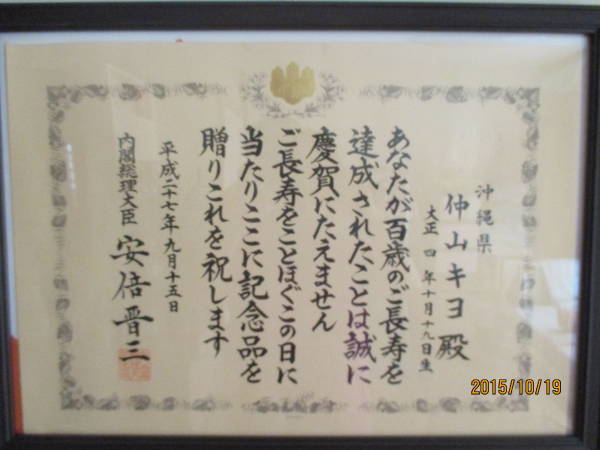 沖縄県
仲山キヨ殿
大正四年十月十九日生
あなたが百歳のご長寿を
達成されたことは誠に
慶賀にたえません
ご長寿をことほぐこの日に
当たりここに記念品を
贈りこれを祝します
平成二十七年九月十五日
内閣総理大臣
安倍晋三
2015/10/19